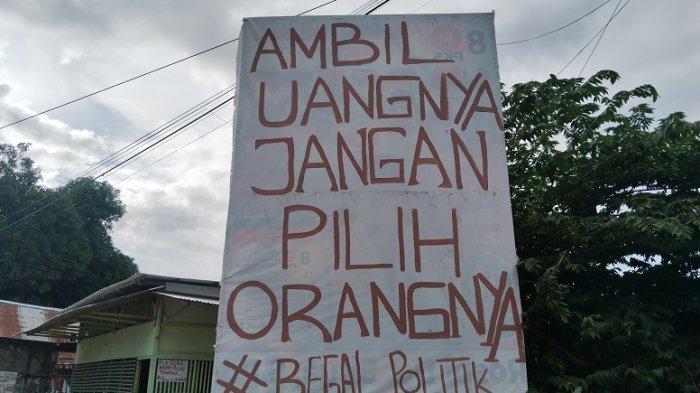 AMBIL
UANGNYA
JANGAN
PILIH
ORANGNYA
#BEGAL POLITIK
8
PKS